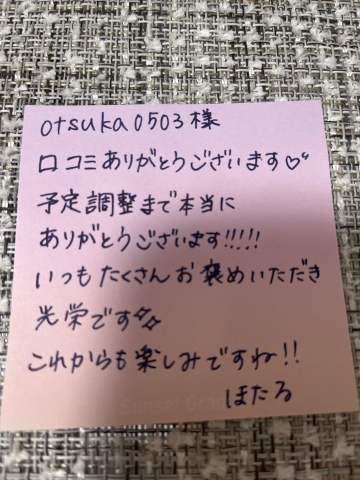 otsuka0503様
口コミありがとうございます♡
予定調整まで本当に
ありがとうございます!!!!!
いつもたくさんお褒めいただき
光栄です✨
これからも楽しみですね!!
ほたる